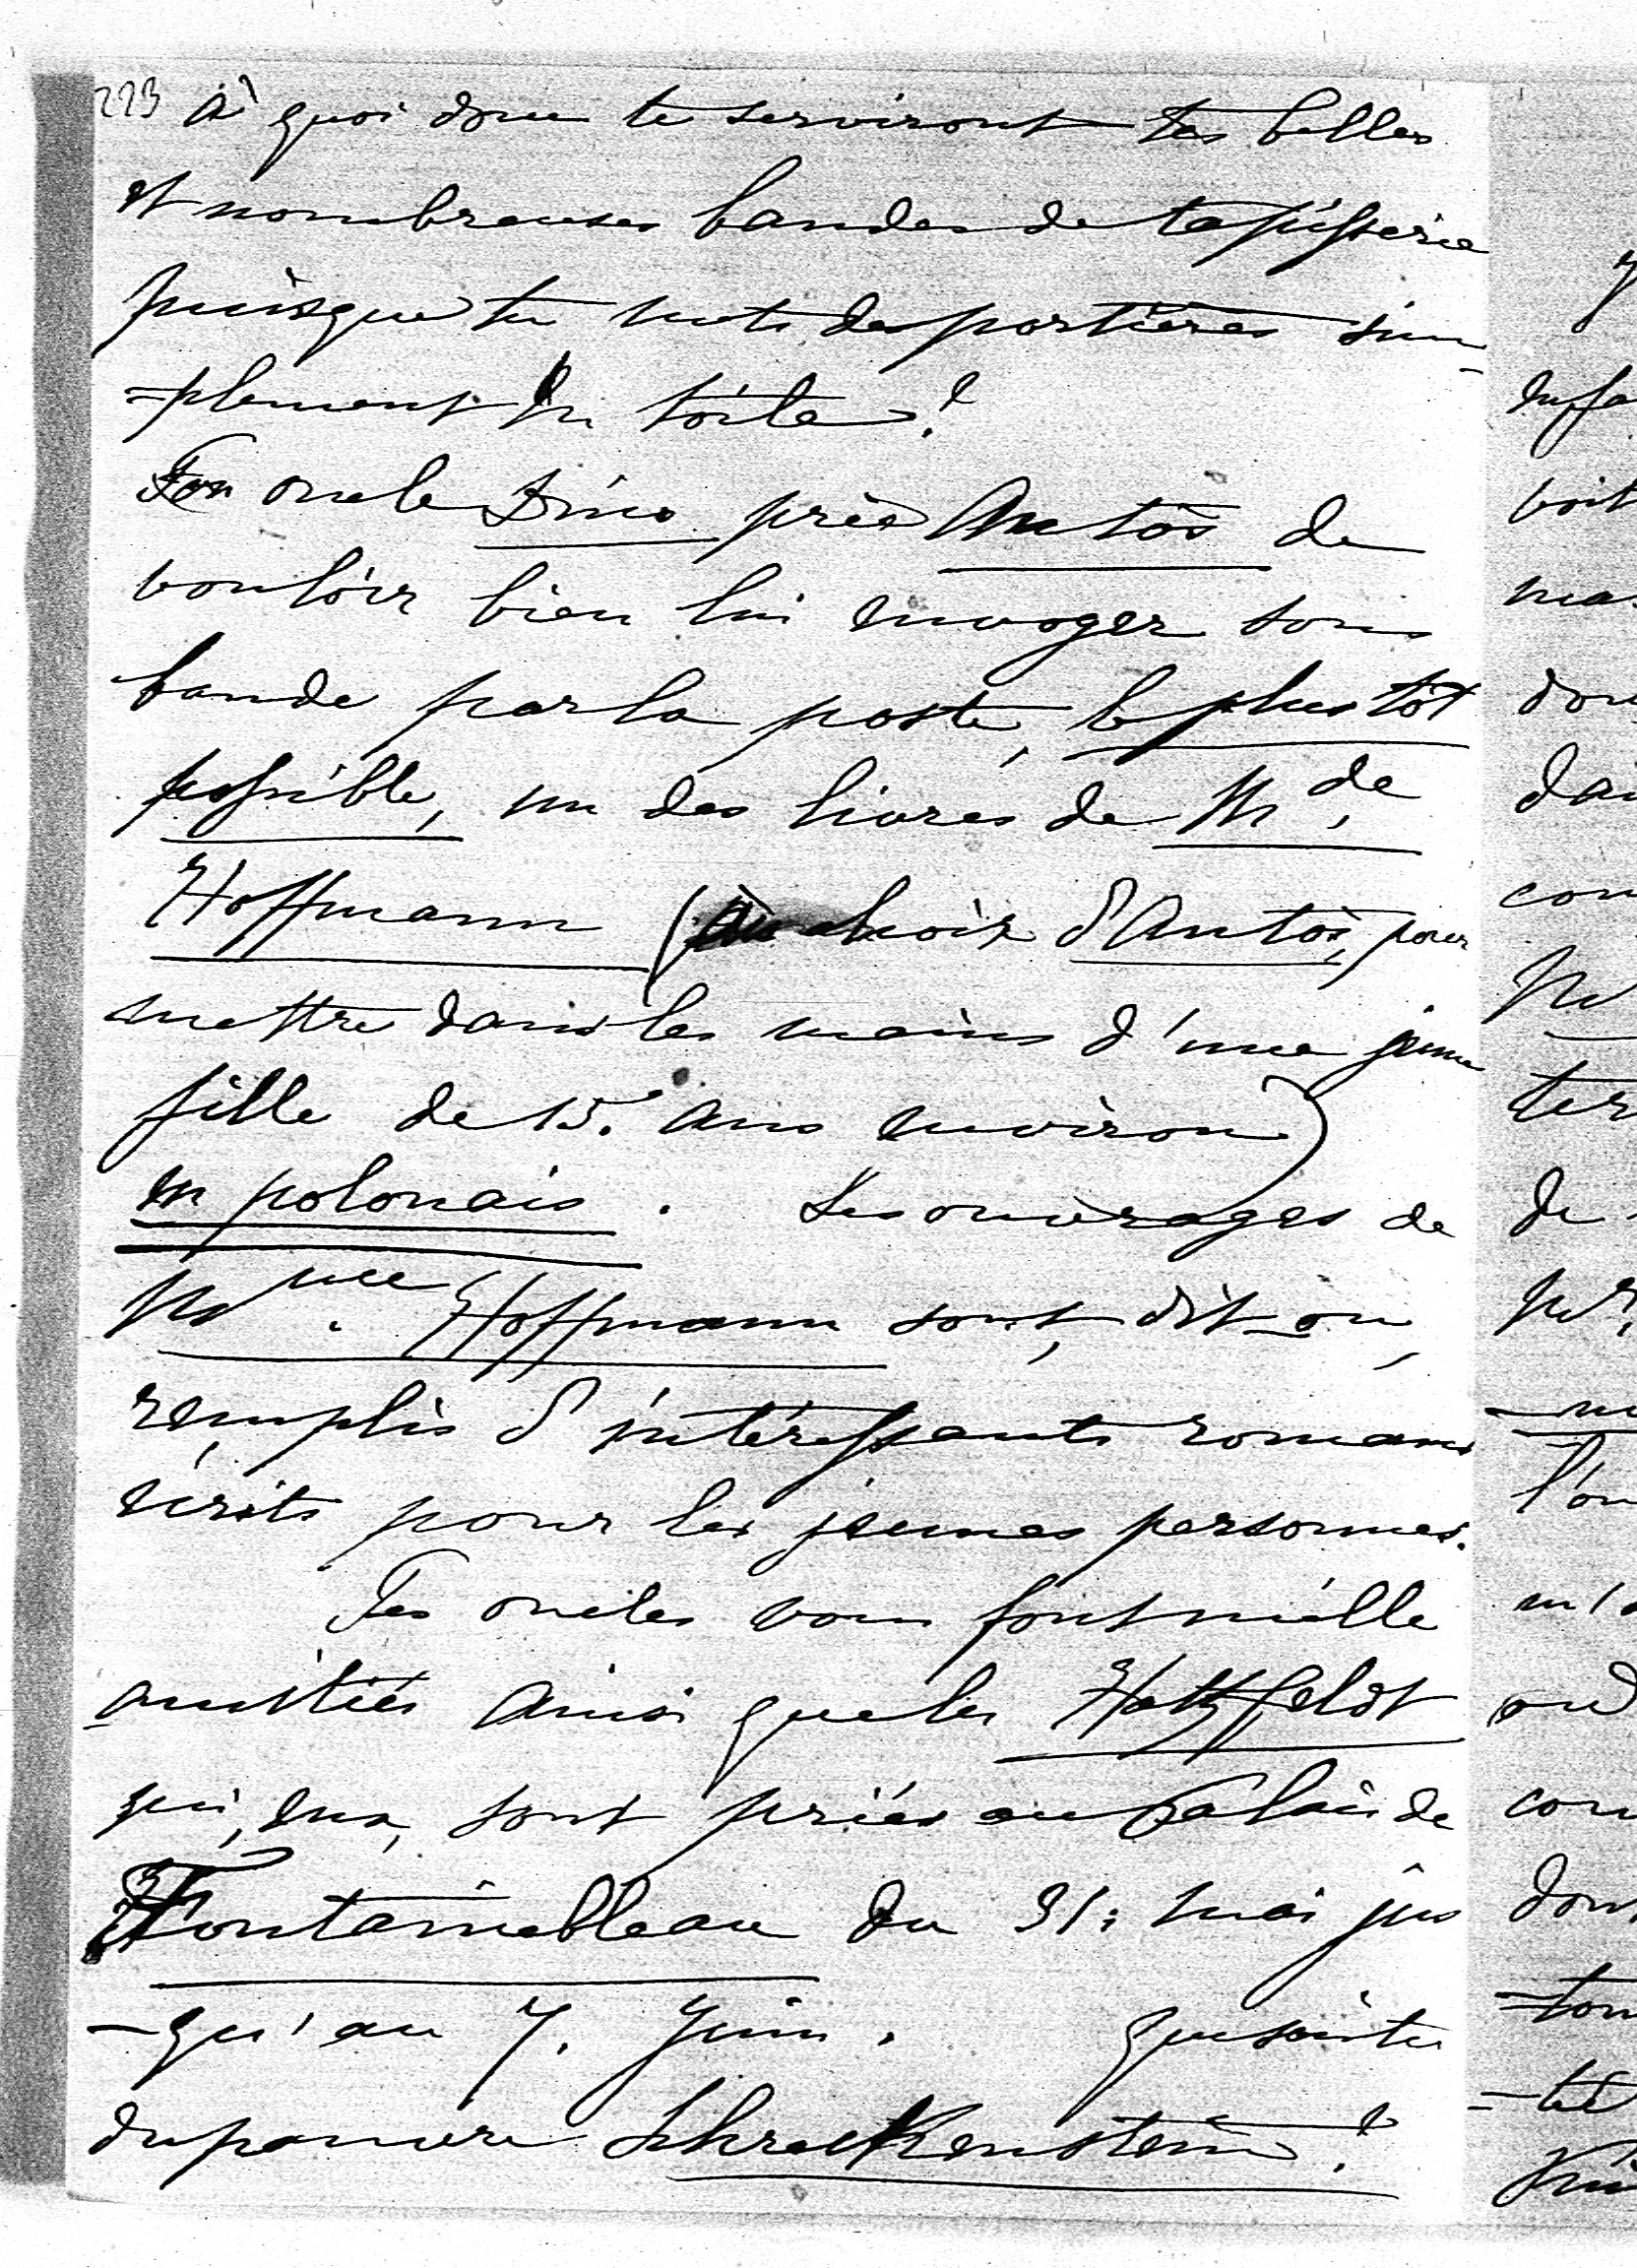 223 à quoi donc te serviront tes belles
et nombreuses bandes de tapisserie
puisque tu mets des portières sim-
-plement en toile?
Ton oncle Dino prie Antos de
vouloir bien lui envoyer sous
bande par la poste, le plus tôt
possible, un des livres de M.de
Hoffmann (au choix d'Antos, pour
mettre dans les mains d'une jeune
fille de 15. ans environ)
en polonais. Les ouvrages de
Mme. Hoffmann sont, dit-on,
remplis d'intéressants romans
écrits pour les jeunes personnes.
Tes oncles vous font mille
amitiés ainsi que les Hatzfeldt
qui, eux, sont priés au Palais de
Fontainebleau du 31: mai jus
-qu'au 7. Juin. Que sais tu
du pauvre Schreckenstein?